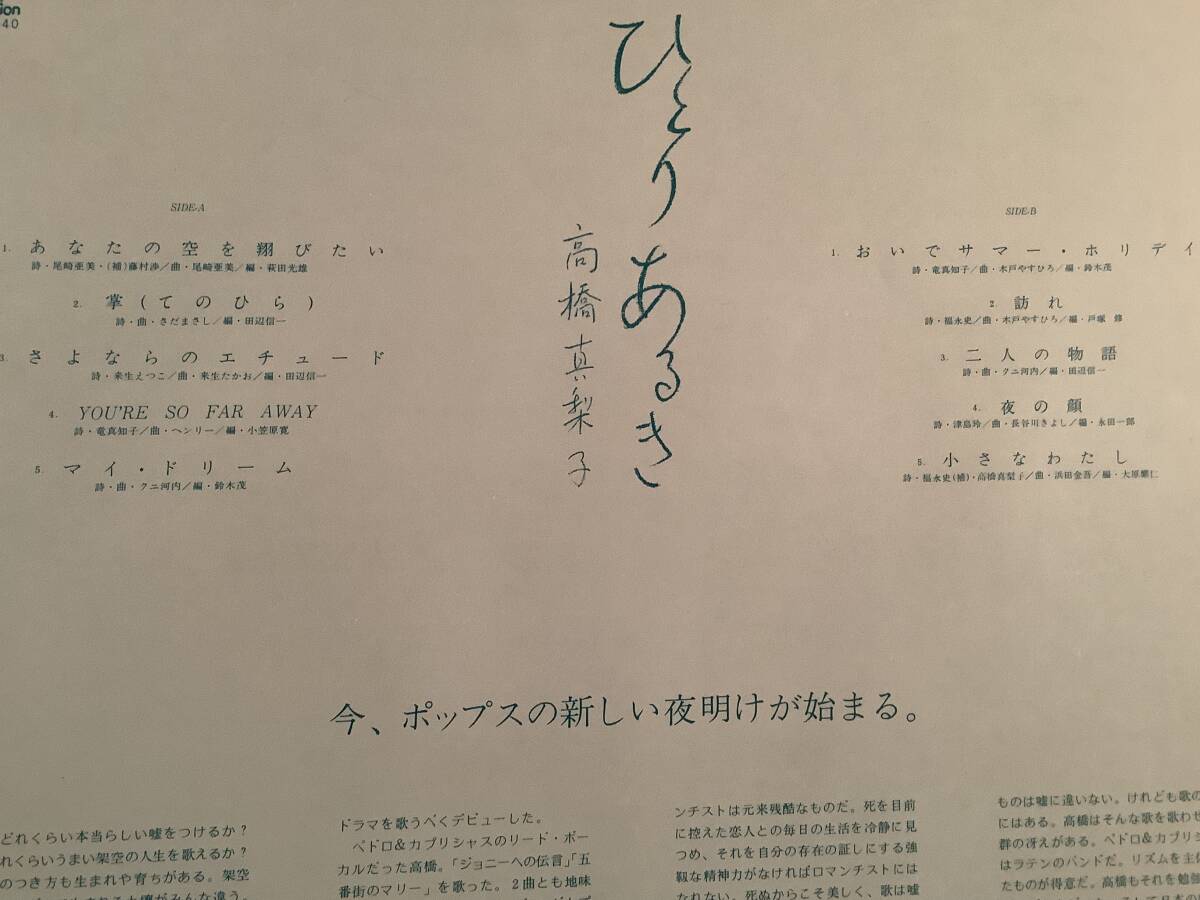 ion
40
ひとりあるき
高橋真梨子
SIDE-A
1. あなたの空を翔びたい
詩・尾崎亜美・(補)藤村渉／曲・尾崎亜美／編・萩田光雄
2. 掌(てのひら)
詩・曲・さだまさし／編・田辺信一
3. さよならのエチュード
詩・来生えつこ／曲・来生たかお／編・田辺信一
4. YOU'RE SO FAR AWAY
詩・竜真知子／曲・ヘンリー／編・小笠原寛
5. マイ・ドリーム
詩・曲・クニ河内／編・鈴木茂
SIDE-B
1. おいでサマー・ホリデイ
詩・竜真知子／曲・木戸やすひろ／編・鈴木茂
2 訪れ
詩・福永史／曲・木戸やすひろ／編・戸塚 修
3. 二人の物語
詩・曲・クニ河内／編・田辺信一
4. 夜の顔
詩・津島玲／曲・長谷川きよし／編・永田一郎
5. 小さなわたし
詩・福永史(補)・高橋真梨子／曲・浜田金吾／編・大原繁仁
今、ポップスの新しい夜明けが始まる。
どれくらい本当らしい嘘をつけるか？
れくらいうまい架空の人生を歌えるか？
のつき方も生まれや育ちがある。架空
ドラマを歌うべくデビューした。
ペドロ&カプリシャスのリード・ボー
カルだった高橋。「ジョニーへの伝言」「五
番街のマリー」を歌った。2曲とも地味
ンチストは元来残酷なものだ。死を目前
に控えた恋人との毎日の生活を冷静に見
つめ、それを自分の存在の証しにする強
靱な精神力がなければロマンチストには
なれない。死ぬからこそ美しく、歌は嘘
ものは嘘に違いない。けれども歌の
にはある。高橋はそんな歌を歌わせ
群の冴えがある。ペドロ&カプリシ
はラテンのバンドだ。リズムを主体
たものが得意だ。高橋もそれを勉強